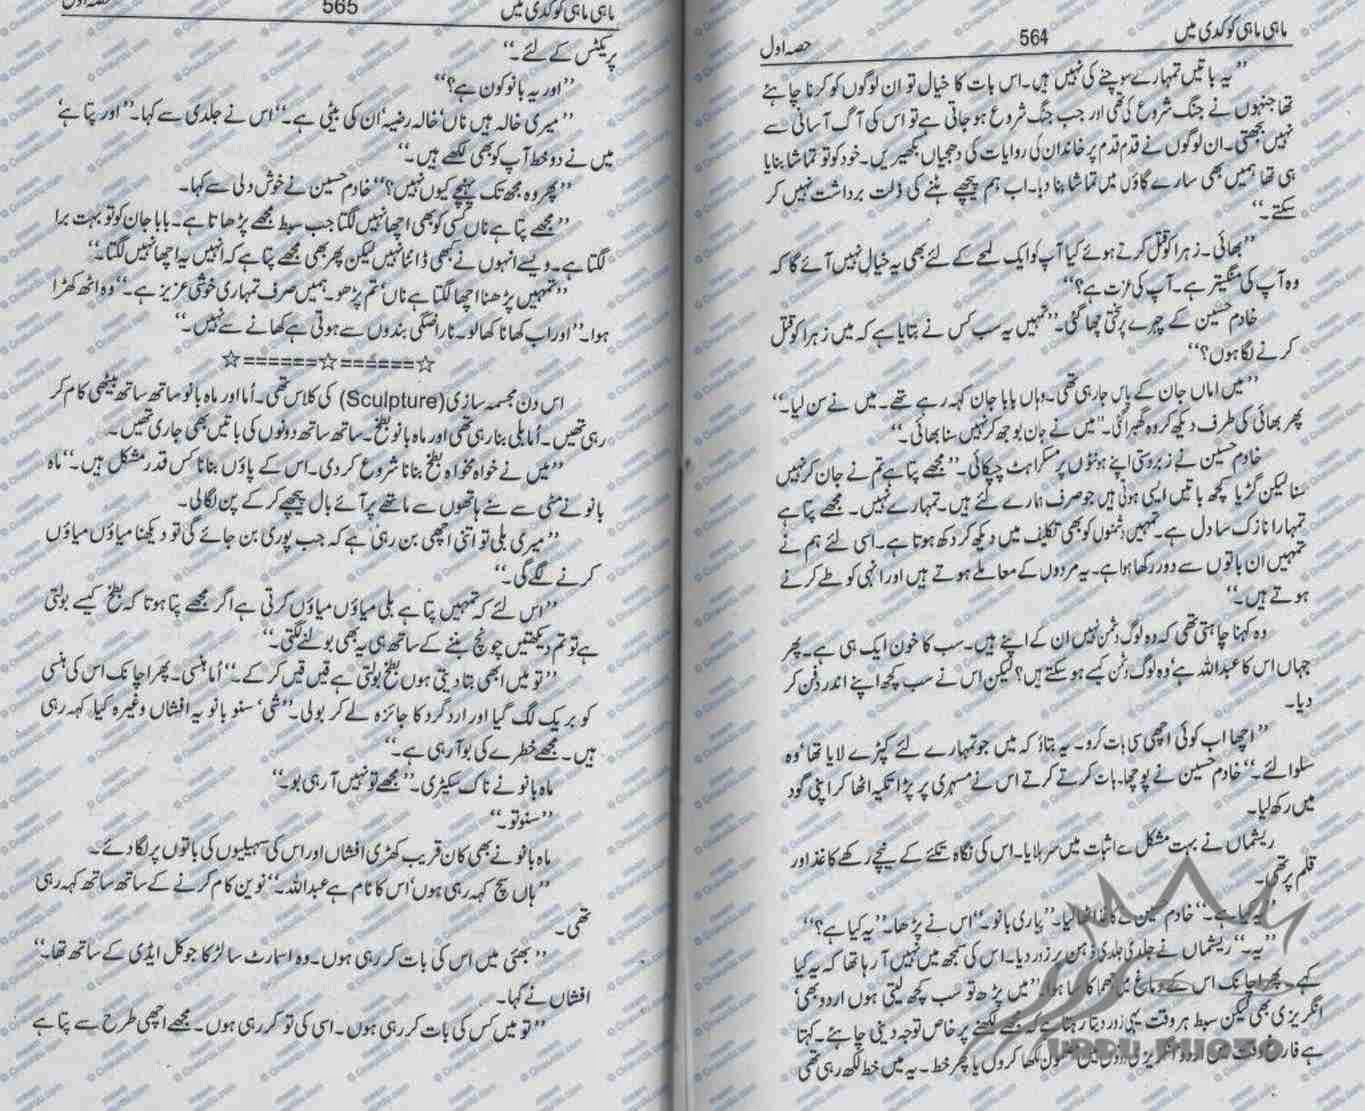 ماہی ماہی کوکدی میں 564 حصہ اول
’’یہ باتیں تمہارے سوچنے کی نہیں ہیں۔اس بات کا خیال تو ان لوگوں کو کرنا چاہئے
تھا جنہوں نے جنگ شروع کی تھی اور جب جنگ شروع ہو جاتی ہے تو اس کی آگ آسانی سے
نہیں بجھتی۔ان لوگوں نے قدم قدم پر خاندان کی روایات کی دھجیاں بکھیریں۔خود کو تو تماشا بنایا
ہی تھا ہمیں بھی سارے گاؤں میں تماشا بنا دیا۔اب ہم پیچھے ہٹنے کی ذلت برداشت نہیں کر
سکتے۔‘‘
’’بھائی۔زہرا کو قتل کرتے ہوئے کیا آپ کو ایک لمحے کے لئے بھی یہ خیال نہیں آئے گا کہ
وہ آپ کی منگیتر ہے۔آپ کی عزت ہے؟‘‘
خادم حسین کے چہرے پر سختی چھا گئی۔’’تمہیں یہ سب کس نے بتایا ہے کہ میں زہرا کو قتل
کرنے لگا ہوں؟‘‘
’’میں اماں جان کے پاس جا رہی تھی۔وہاں بابا جان کہہ رہے تھے۔میں نے سن لیا۔‘‘
پھر بھائی کی طرف دیکھ کر وہ گھبرا گئی۔’’میں نے جان بوجھ کر نہیں سنا بھائی۔‘‘
خادم حسین نے زبردستی اپنے ہونٹوں پر مسکراہٹ چپکائی۔’’مجھے پتا ہے تم نے جان کر نہیں
سنا لیکن گڑیا کچھ باتیں ایسی ہوتی ہیں جو صرف ہمارے لئے ہیں۔تمہارے نہیں۔مجھے پتا ہے
تمہارا نازک سا دل ہے۔تمہیں دشمنوں کو بھی تکلیف میں دیکھ کر دکھ ہوتا ہے۔اسی لئے ہم نے
تمہیں ان باتوں سے دور رکھا ہوا ہے۔یہ مردوں کے معاملے ہوتے ہیں اور انہی کو طے کرنے
ہوتے ہیں۔‘‘
وہ کہنا چاہتی تھی کہ وہ لوگ دشمن نہیں ان کے اپنے ہیں۔سب کا خون ایک ہی ہے۔پھر
جہاں اس کا عبداللہ ہے‘ وہ لوگ دشمن کیسے ہو سکتے ہیں؟ لیکن اس نے سب کچھ اپنے اندر دفن کر
دیا۔
’’اچھا اب کوئی اچھی سی بات کرو۔یہ بتاؤ کہ میں جو تمہارے لئے کپڑے لایا تھا‘ وہ
سلوا لئے۔‘‘ خادم حسین نے پوچھا۔بات کرتے کرتے اس نے مسہری پر پڑا تکیہ اٹھا کر اپنی گود
میں رکھ لیا۔
ریشماں نے بہت مشکل سے اثبات میں سر ہلایا۔اس کی نگاہ تکئے کے نیچے رکھے کاغذ اور
قلم پر تھی۔
’’یہ کیا ہے۔‘‘ خادم حسین نے کاغذ اٹھا لیا۔’’پیاری بانو۔‘‘ اس نے پڑھا۔’’یہ کیا ہے؟‘‘
’’یہ۔‘‘ ریشماں نے جلدی جلدی ذہن پر زور دیا۔اس کی سمجھ میں نہیں آ رہا تھا کہ یہ کیا
کہے۔پھر اچانک اس کے دماغ میں جھماکا سا ہوا۔’’میں پڑھ تو سب کچھ لیتی ہوں اردو بھی‘
انگریزی بھی لیکن سبط ہر وقت یہی زور دیتا رہتا ہے کہ مجھے لکھنے پر خاص توجہ دینی چاہئے۔کہتا
ہے فارغ وقت میں اردو انگریزی دونوں میں مضمون لکھا کروں یا پھر خط۔یہ میں خط لکھ رہی تھی
URDU PHOTO
ماہی ماہی کوکدی میں 565 حصہ اول
پریکٹس کے لئے۔‘‘
’’اور یہ بانو کون ہے؟‘‘
’’میری خالہ ہیں ناں‘ خالہ رضیہ‘ ان کی بیٹی ہے۔‘‘ اس نے جلدی سے کہا۔’’اور پتا ہے‘
میں نے دو خط آپ کو بھی لکھے ہیں۔‘‘
’’پھر وہ مجھ تک پہنچے کیوں نہیں؟‘‘ خادم حسین نے خوش دلی سے کہا۔
’’مجھے پتا ہے ناں کسی کو بھی اچھا نہیں لگتا جب سبط مجھے پڑھاتا ہے۔بابا جان کو تو بہت برا
لگتا ہے۔ویسے انہوں نے کبھی ڈانٹا نہیں لیکن پھر بھی مجھے پتا ہے کہ انہیں یہ اچھا نہیں لگتا۔‘‘
’’تمہیں پڑھنا اچھا لگتا ہے ناں‘ تم پڑھو۔ہمیں صرف تمہاری خوشی عزیز ہے۔‘‘ وہ اٹھ کھڑا
ہوا۔’’اور اب کھانا کھا لو۔ناراضگی بندوں سے ہوتی ہے کھانے سے نہیں۔‘‘
☆======☆======☆
اس دن مجسمہ سازی (Sculpture) کی کلاس تھی۔اُما اور ماہ بانو ساتھ ساتھ بیٹھی کام کر
رہی تھیں۔اُما بلی بنا رہی تھی اور ماہ بانو بطخ۔ساتھ ساتھ دونوں کی باتیں بھی جاری تھیں۔
’’میں نے خواہ مخواہ بطخ بنانا شروع کر دی۔اس کے پاؤں بنانا کس قدر مشکل ہیں۔‘‘ ماہ
بانو نے مٹی سے سنے ہاتھوں سے ماتھے پر آئے بال پیچھے کر کے پن لگا لی۔
’’میری بلی تو اتنی اچھی بن رہی ہے کہ جب پوری بن جائے گی تو دیکھنا میاؤں میاؤں
کرنے لگے گی۔‘‘
’’اس لئے کہ تمہیں پتا ہے بلی میاؤں میاؤں کرتی ہے اگر مجھے پتا ہوتا کہ بطخ کیسے بولتی
ہے تو تم دیکھتیں چونچ بننے کے ساتھ ہی یہ بھی بولنے لگتی۔‘‘
’’تو میں ابھی بتا دیتی ہوں بطخ بولتی ہے قیں قیں کر کے۔‘‘ اُما ہنسی۔پھر اچانک اس کی ہنسی
کو بریک لگ گیا اور ارد گرد کا جائزہ لے کر بولی۔’’شی‘ سنو بانو یہ افشاں وغیرہ کیا کہہ رہی
ہیں۔مجھے خطرے کی بو آ رہی ہے۔‘‘
ماہ بانو نے ناک سکیڑی۔’’مجھے تو نہیں آ رہی بو۔‘‘
’’سنو تو۔‘‘
ماہ بانو نے بھی کان قریب کھڑی افشاں اور اس کی سہیلیوں کی باتوں پر لگا دئے۔
’’ہاں سچ کہہ رہی ہوں‘ اس کا نام ہے عبداللہ۔‘‘ نوین کام کرنے کے ساتھ ساتھ کہہ رہی
تھی۔
’’بھئی میں اس کی بات کر رہی ہوں۔وہ اسمارٹ سا لڑکا جو کل ایڈی کے ساتھ تھا۔‘‘
افشاں نے کہا۔
’’تو میں کس کی بات کر رہی ہوں۔اسی کی تو کر رہی ہوں۔مجھے اچھی طرح سے پتا ہے